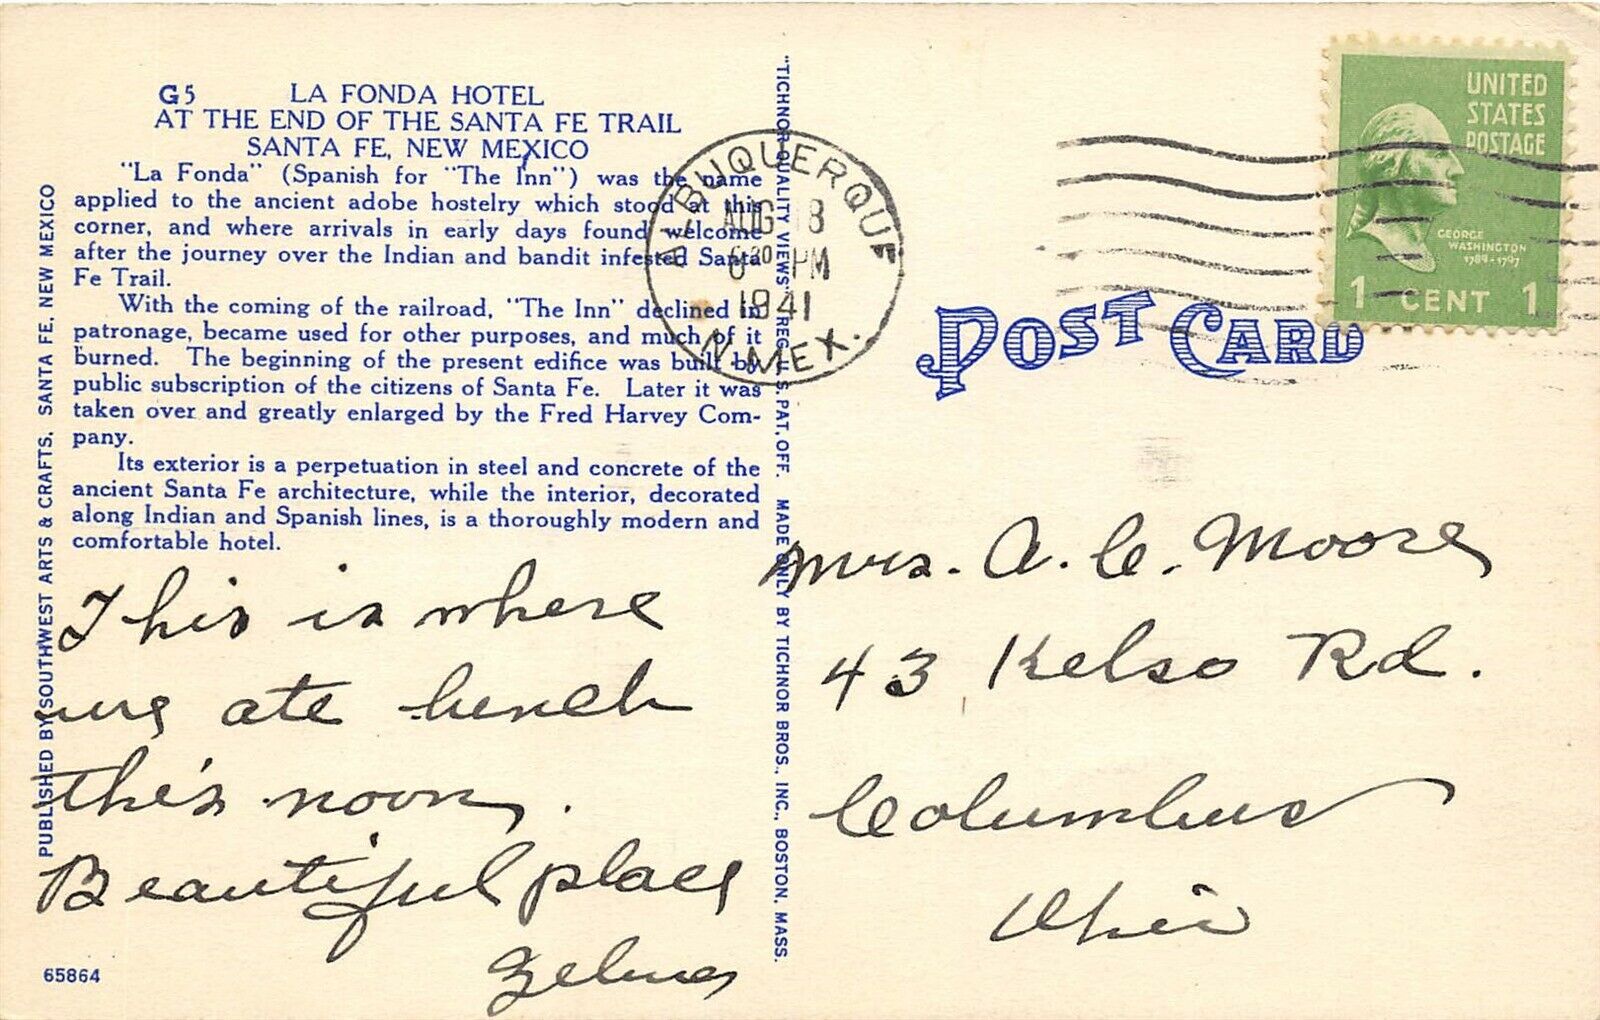 G5 LA FONDA HOTEL
AT THE END OF THE SANTA FE TRAIL
SANTA FE, NEW MEXICO
"La Fonda" (Spanish for "The Inn") was the name
applied to the ancient adobe hostelry which stood at this
corner, and where arrivals in early days found welcome
after the journey over the Indian and bandit infested Santa
Fe Trail.
With the coming of the railroad, "The Inn" declined in
patronage, became used for other purposes, and much of it
burned. The beginning of the present edifice was built by
public subscription of the citizens of Santa Fe. Later it was
taken over and greatly enlarged by the Fred Harvey Com-
pany.
Its exterior is a perpetuation in steel and concrete of the
ancient Santa Fe architecture, while the interior, decorated
along Indian and Spanish lines, is a thoroughly modern and
comfortable hotel.
This is where
we ate lunch
this noon.
Beautiful place
Zelma
65864
PUBLISHED BY SOUTHWEST ARTS & CRAFTS, SANTA FE, NEW MEXICO
"TICHNOR QUALITY VIEWS" REG. U. S. PAT. OFF. MADE ONLY BY TICHNOR BROS., INC., BOSTON, MASS.
ALBUQUERQUE
AUG 18
6 30 PM
1941
N. MEX.
UNITED
STATES
POSTAGE
GEORGE
WASHINGTON
1789-1797
1 CENT 1
POST CARD
Mrs. A. C. Moore
43 Kelso Rd.
Columbus
Ohio